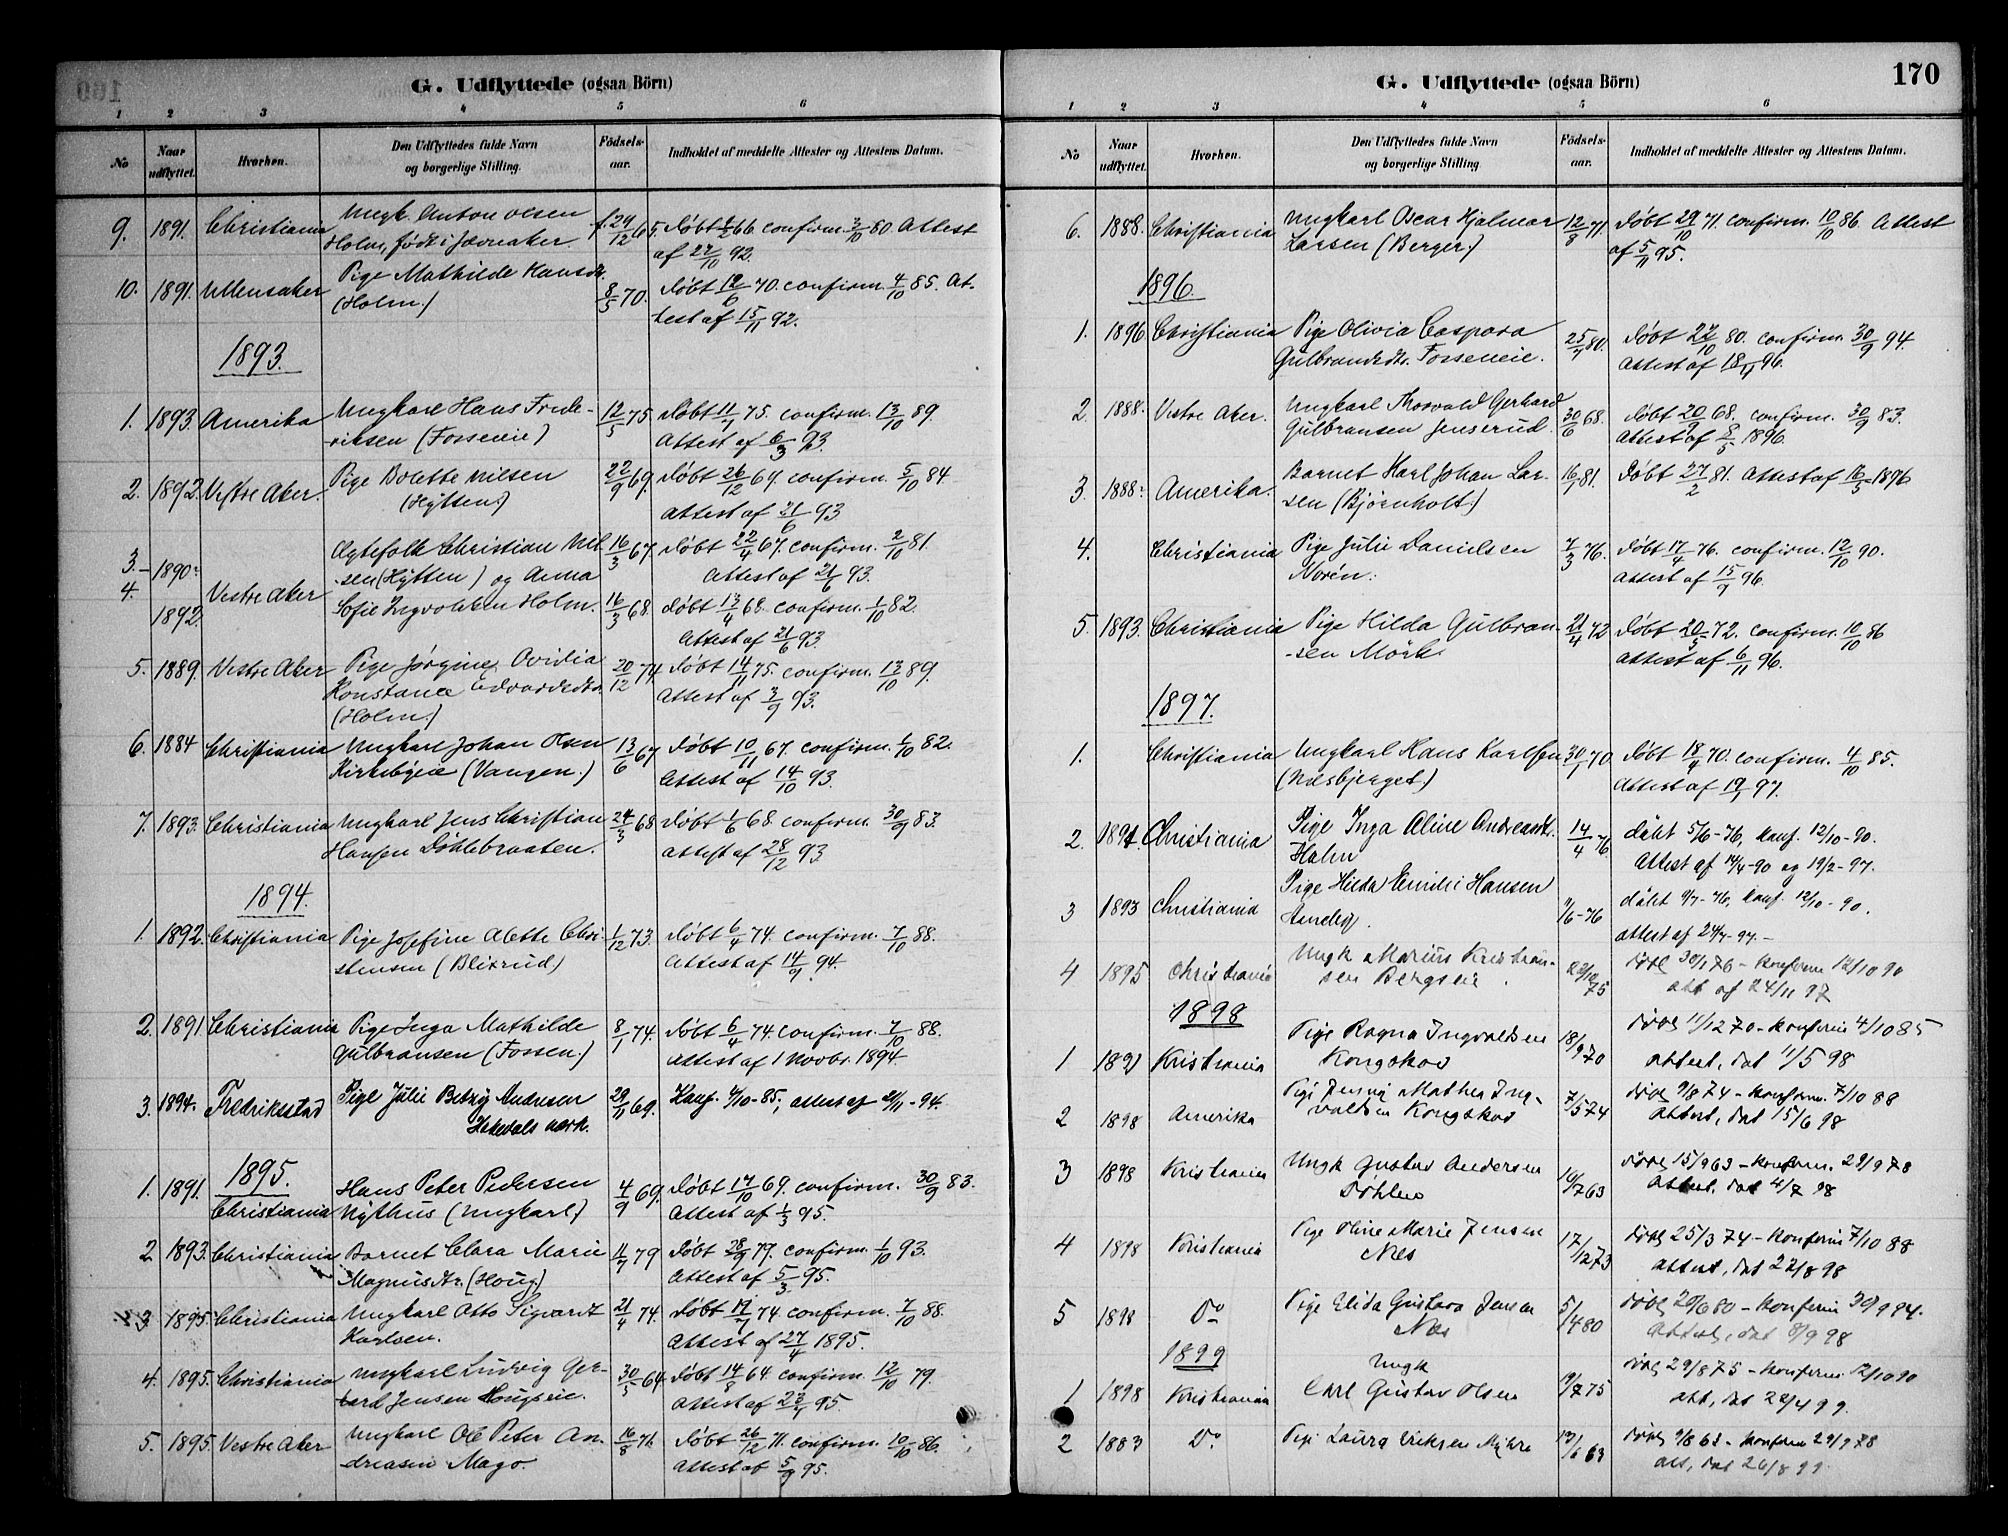 G. Udflyttede (ogsaa Börn)
1 2 3 4 5 6
No
Naar udflyttet.
Hvorhen.
Den Udflyttedes fulde Navn og borgerlige Stilling.
Fødsels-aar.
Indholdet af meddelte Attester og Attestens Datum.
9. 1891. Christiania Ungk. Anton Olsen 65. Døbt 66 confirm. 3/10 80 Attest
Holm, født i Jevnaker af 22/10 92.
10. 1891. Ullensaker Pige Mathilde Hansdr. 8/5 70. Døbt 12/6 70. confirm. 4/10 85. At-
(Holm.) test af 15/11 92.
1893.
1. 1893. Amerika Ungkarl Hans Frede- 12/5 75. Døbt 11/7 75. confirm. 13/10 89.
riksen (Fosseneie) Attest af 6/3 93.
2. 1892. Vestre Aker. Pige Bolette Nilsen 22/9 69. Døbt 26/12 69. confirm. 5/10 84
(Hytten.) Attest af 21/6 93
3.– 1890- Ægtefolk Christian Nil- 16/3 67. Døbt 22/4 67. confirm. 2/10 81.
4. Vestre Aker sen (Hytten) og Anna Attest af 21/6 93.
1892. Sofie Ingvoldsen Holm. 16/3 68. Døbt 13/4 68. confirm. 1/10 82.
Attest af 21/6 93.
5. 1889. Vestre Aker Pige Jørgine Ovidia 20/12 74. Døbt 14/11 75. confirm. 13/10 89.
Konstance Edvardsdtr. Attest af 3/9 93.
(Holm.)
6. 1884 Christiania Ungkarl Johan Olsen 13/6 67 Døbt 10/11 67. confirm. 1/10 82.
Kirkebyeie (Vangen.) Attest af 14/10 93.
7. 1893. Christiania Ungkarl Jens Christian 24/3 68 Døbt 1/6 68. confirm. 30/9 83.
Hansen Døhlebraaten. Attest af 28/12 93
1894.
1. 1892. Christiania Pige Josefine Alette Chri- 1/12 73. Døbt 6/4 74. confirm. 7/10 88.
stensen (Blixrud) Attest af 14/9 94.
2. 1891. Christiania Pige Inga Mathilde 8/1 74. Døbt 6/4 74. confirm. 7/10 88.
Gulbransen (Fossen.) Attest af 1 Novbr. 1894.
3. 1894. Fredriksstad Pige Julie Betzy Andresen 29/11 69. Konf. 4/10-85, attest af 21/11-94.
Hakedals værk.
1895.
1. 1891. Hans Peter Pedersen 4/9 69. Døbt 17/10 69. confirm. 30/9 83.
Christiania Nythus (Ungkarl) Attest af 1/3 95.
2 1893. Christiania Barnet Clara Marie 11/7 79 Døbt 28/9 79. confirm. 1/10 93.
Magnusdtr. (Houg) Attest af 5/3 95.
3. 1895. Christiania Ungkarl Otto Sigvardt 21/4 74. Døbt 74 confirm. 7/10 88.
Karlsen. Attest af 27/4 1895.
4. 1895. Christiania Ungkarl Ludvig Ger- 30/5 64. Døbt 14/8 64. confirm. 12/10 79.
hard Jensen Hougseie. Attest af 95.
5. 1895. Vestre Aker Ungkarl Ole Peter An- 16/8 71. Døbt 26/12 71. confirm. 10/10 86.
dreasen Mago. Attest af 5/9 95.
G. Udflyttede (ogsaa Börn) 170
1 2 3 4 5 6
No
Naar udflyttet.
Hvorhen.
Den Udflyttedes fulde Navn og borgerlige Stilling
Fødsels-aar.
Indholdet af meddelte Attester og Attestens Datum.
6. 1888. Christiania Ungkarl Oscar Hjalmar 12/8 71 Døbt 29/10 71. confirm. 10/10 86. Attest
Larsen (Berger) af 5/11 95.
1896.
1. 1896. Christiania Pige Olivia Caspara 25/7 80. Døbt 80. confirm. 30/9 94.
Gulbrandsdtr. Fosseneie. Attest af 18/11 96.
2. 1888. Vestre Aker. Ungkarl Thorvald Gerhard 30/6 68. Døbt 20/9 68. confirm. 30/9 83.
Gulbransen Jenserud. Attest af 8/5 1896.
3. 1888. Amerika. Barnet Karl Johan Lar- 16/1 81. Døbt 27/2 81. Attest af 16/5 1896
sen (Bjørnholt.)
4. Christiania Pige Julie Danielsen 7/3 76. Døbt 17/4 76. confirm. 12/10 90.
Norén. Attest af 15/9 96.
5. 1893. Christiania Pige Hilda Gulbran- 21/4 72 Døbt 20/5 72. confirm. 10/10 86
sen Mörk. Attest af 6/11 96.
1897.
1. Christiania Ungkarl Hans Karlsen 30/1 70. Døbt 18/4 70. confirm. 4/10 85.
(Næsbjerget.) Attest af 19/1 97.
2. 1894 Christiania Pige Inga Oline Andreasdt. 14/4 76. døbt 5/6-76, konf. 12/10-90.
Holm Attest af 14/4-90 og 19/2-97.
3 1893 Christiania Pige Hilda Emilie Hansen /6-76 døbt 9/7-76, konf. 12/10-90.
attest af 24/7-97.-
4 1895 Christiania Ungk Marius Kristian- 22/10 75 døbt 30/1 76 - konfirm 12/10 90
sen Bergseie. att af 24/11 97
1898
1 Kristiania Pige Ragna Ingvaldsen 18/9 70 døbt 11/12 70 - konfirm 4/10 85
Kongskov attest, dat 11/5 98
2 1898 Amerika Pige Jenny Mathea Ing- 7/5 74 døbt 9/8 74 - konfirm. 7/10 88
valdsen Kongskov Attest, dat 15/6 98
3 1898 Kristiania Ungk Gustav Andersen 19/7 63 døbt 15/9 63 - konfirm. 29/9 78
Döhlen Attest, dat 4/7 98
4 1898 Kristiania Pige Oline Marie Jensen 17/12 73 døbt 25/3 74 - konfirm 7/10 88
Nes attest, dat 22/8 98
5 1898 Do Pige Elida Gustava Jensen 5/4 80 døbt 20/6 80 - konfirm 30/9 94.
Nes Attest, dat 8/9 98
1899
Ungk døbt 29/8 75 - konfirm 12/10 90
1 1898 Kristiania Carl Gustav Olsen 19/7 75 att, dat 22/4 99.
2 1883 Do Pige Laura Eriksen Myhre 63 døbt 9/8 63 - konfirm 29/9 78
att, dat 26/8 99.